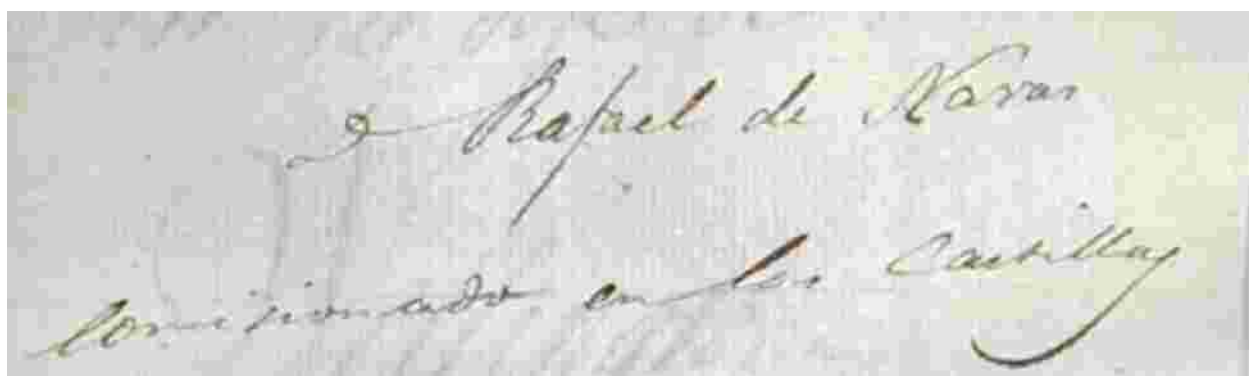 Rafael de Navas
Comisionado en las Castillas